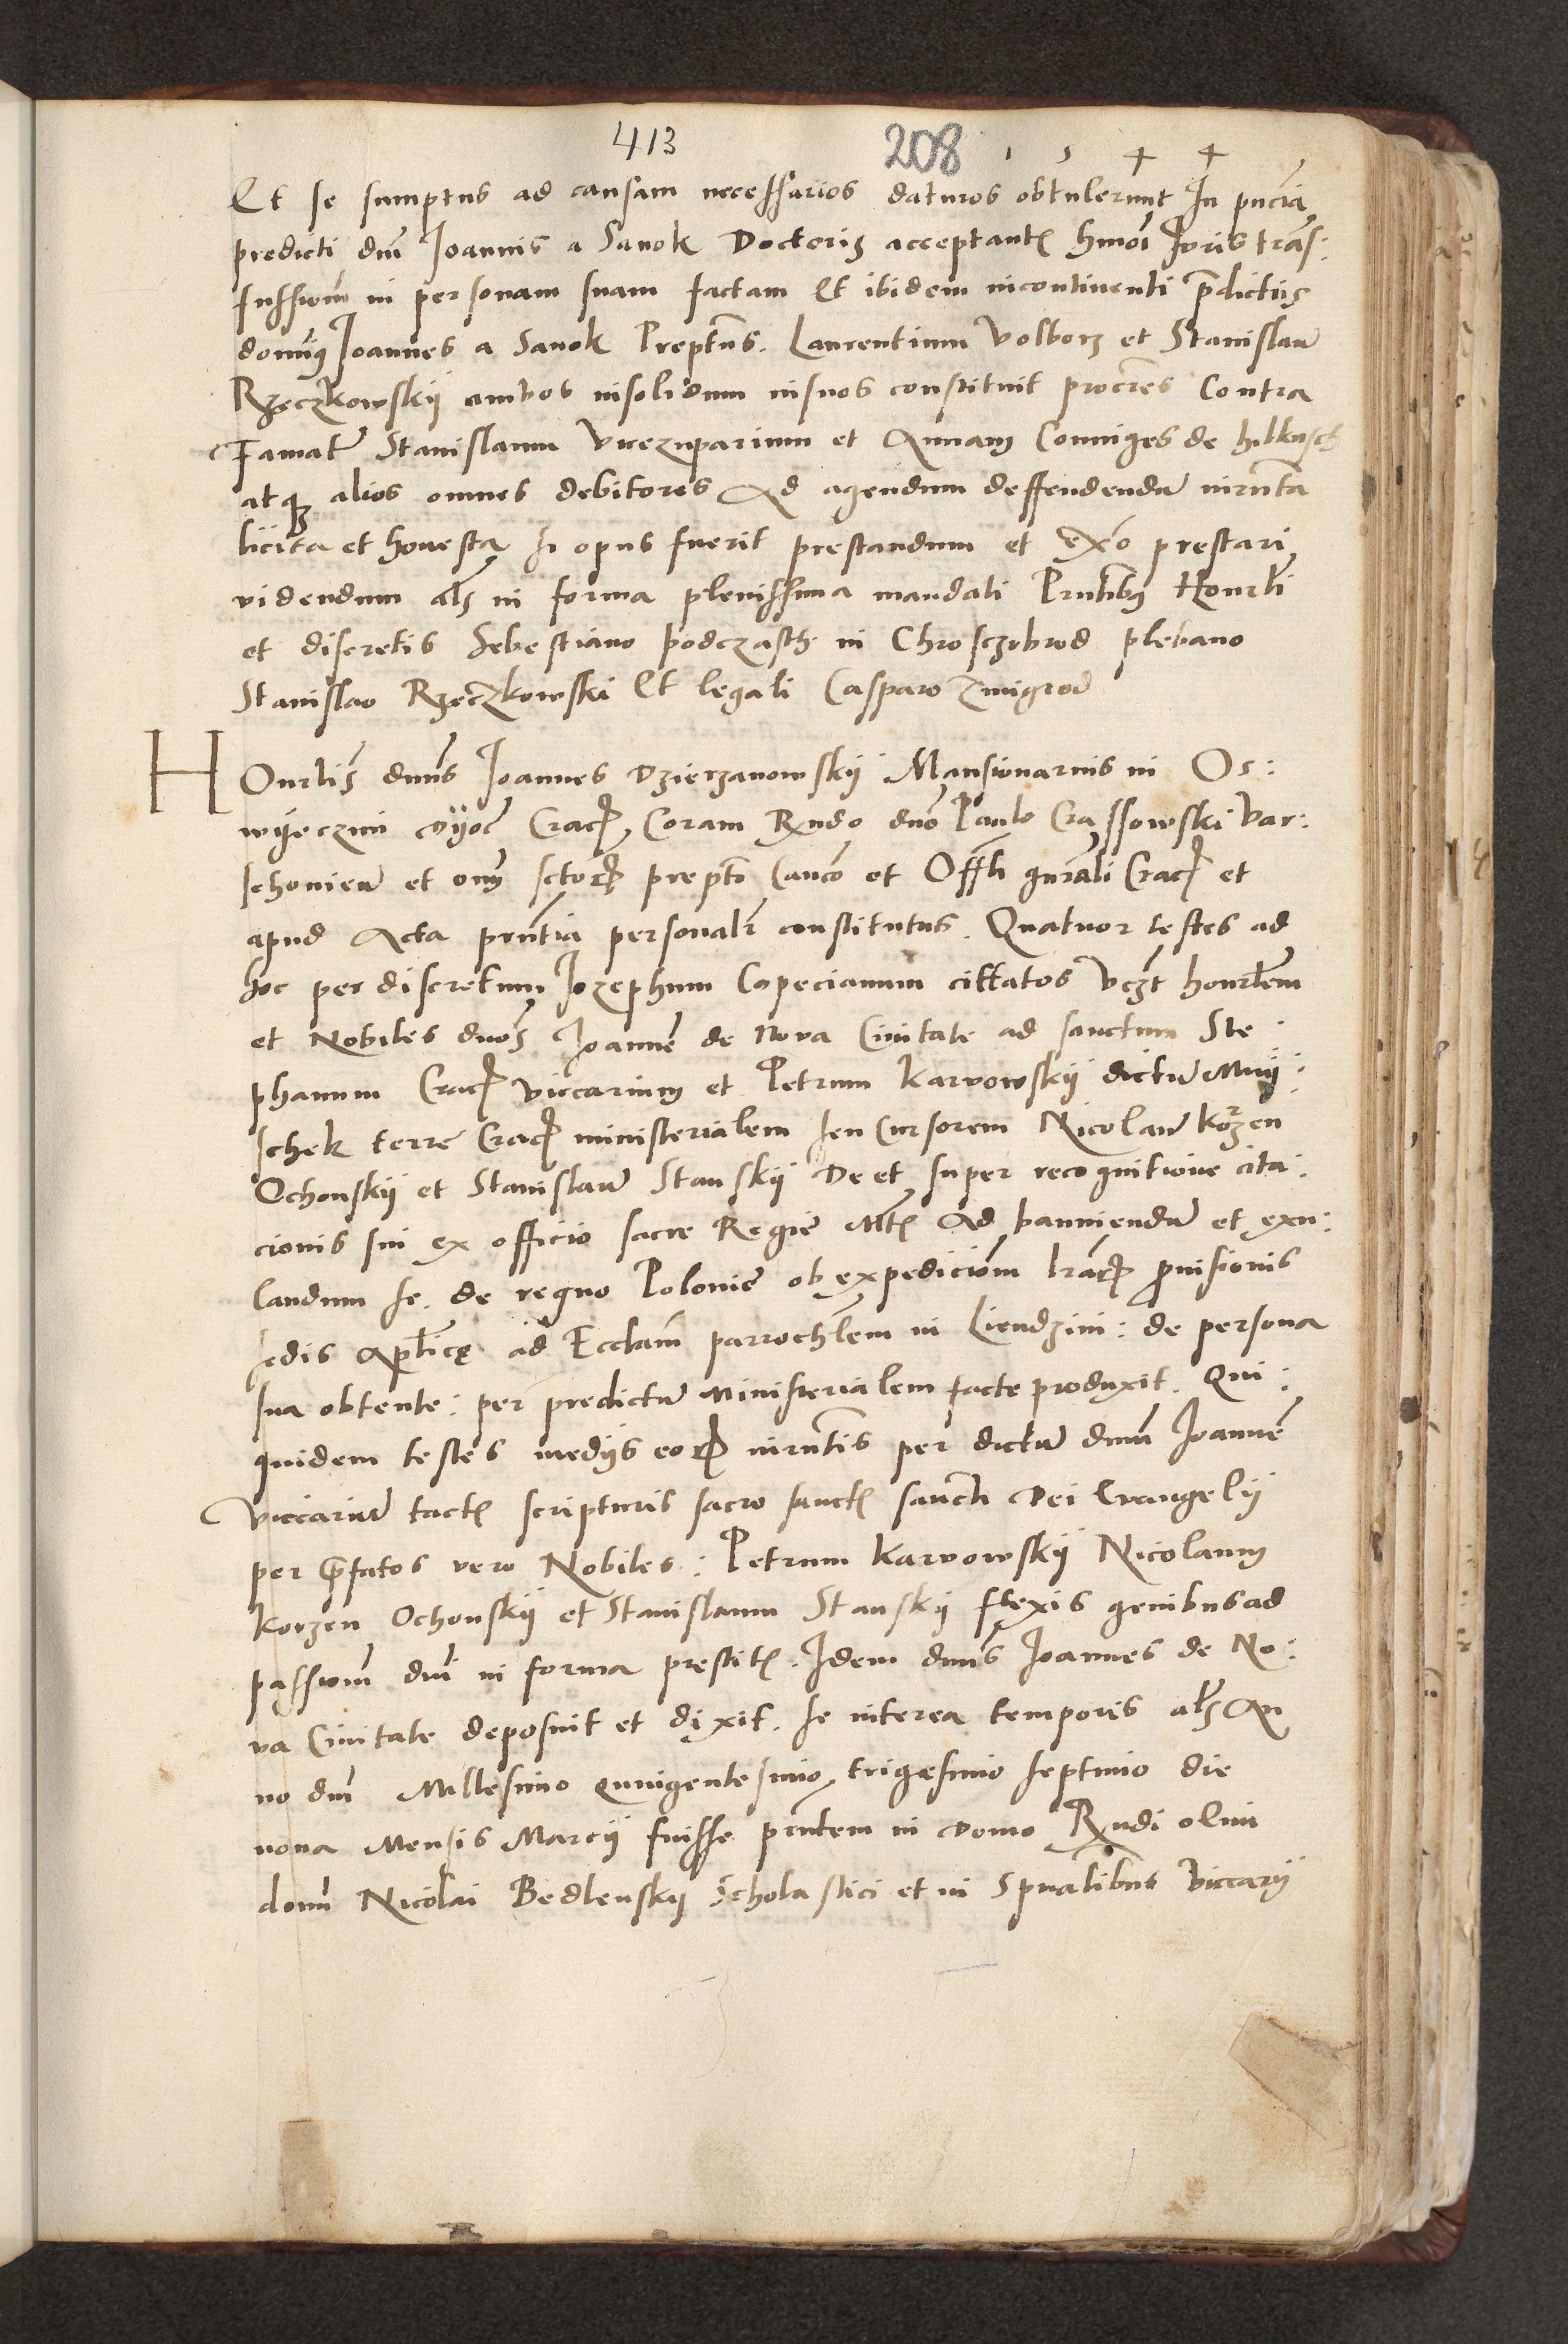 413 208 1 5 4 4
Et se sumptus ad causam necessarios daturos obtulerunt In pñcia
predicti dñi Joannis a Sanok Doctoris acceptantis hmoi Juris trans:
fussionem in personam suam factam Et ibidem incontinenti p̃dictus
domin9 Joannes a Sanok Preptus. Laurentium Volborz et Stanislaũ
Rzeczkowskij ambos insolidum insuos constituit procres Contra
Famatũ Stanislaum Vicezuparium et Annam Conuiges de hilkusch
atq3 alios omnes debitores Ad agendum deffendendũ iurñta
licita et honesta si opus fuerit prestandum et exo prestari
videndum als in forma plenissima mandati Prñtib9 Honrli
et discretis Sebestiano podczaschi in Chrosczobrod plebano
Stanislao Rzeczkowski Et legali Casparo Zmigrod
HOnrlis dnũs Joannes Dzierzanowskij Mansionarius in Os:
wyeczim Dyoc Crac. Coram Rndo dno Paulo Crassowski Var:
schouien et omĩ sctorum prepto Canco et Offli gñrali Crac et
apud Acta prñtia personalr constitutus. Quatuor testes ad
hoc per discretum Jozephum Copecianum cittatos vczt honrlem
et Nobiles dnos Joannẽ de Nova Ciuitate ad sanctum Ste:
phanum Crac viccarium et Petrum Karvowskij dictũ Miij:
schek terre Crac ministerialem seu Cursorem Nicolaũ Korzen
Ochonskij et Stanislaũ Stanskij De et super recognitione cita:
cionis sui ex officio sacre Regie Mtis Ad banniendũ et exu:
landum se de regno Polonie ob expedicionẽ lrãrum prouisionis
sedis Aplicę ad Ecclam parrochlem in Liendzini: de persona
sua obtente: per predictũ Ministerialem facte produxit. Qui:
quidem testes medijs eorum iurñtis per dictũ dnũm Joannẽ
Viccariũ tactis scripturis sacro sanctis sancti Dei Evangelij
per p̃fatos vero Nobiles: Petrum Karvowskij Nicolaum
Korzen Ochonskij et Stanislaum Stanskij flexis genibus ad
passionẽ dnĩ in forma prestitis. Idem dnũs Joannes de No:
va Ciuitate deposuit et dixit. se interea temporis als An
no dnĩ Millesimo quingentesimo, trigesimo septimo die
nona Mensis Marcij fuisse prñtem in Domo Rndi olim
domĩ Nicolai Bedlenskij Scholastici et in Spualibus Viccarij